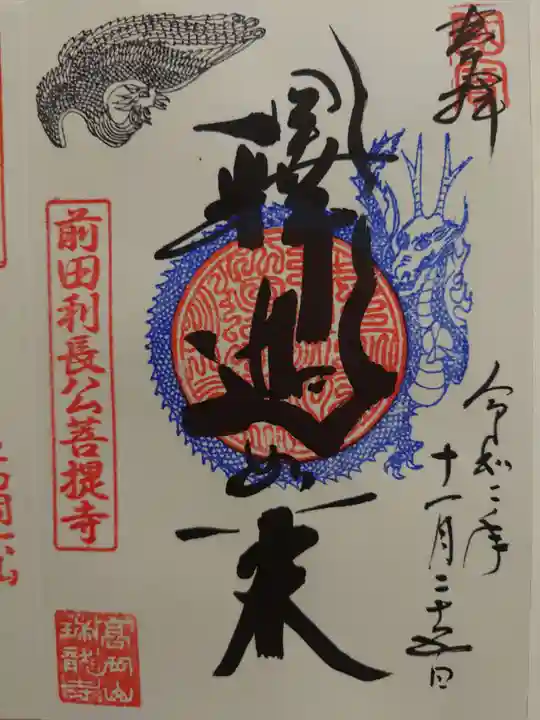 奉拝
釋迦如来
令和二年
十一月二十五日
前田利長公菩提寺
高岡山
瑞龍寺